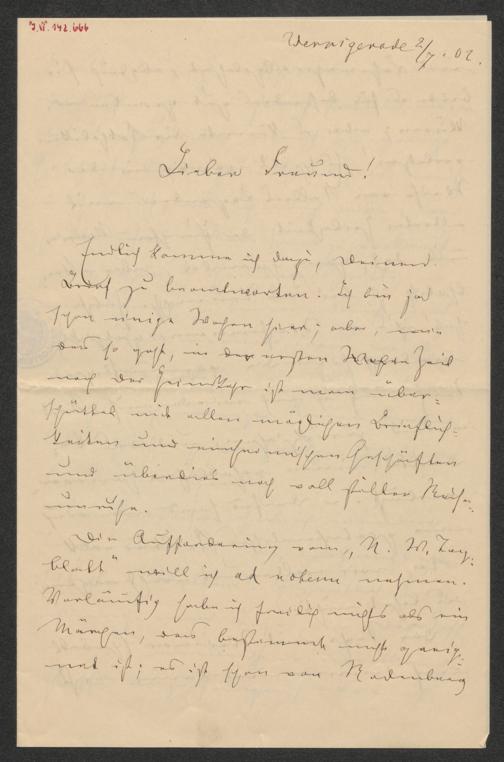 J.N. 142.666
Wernigerode 2/7. 02.
Lieber Freund!
Endlich komme ich dazu, Deinen
Brief zu beantworten. Ich bin ja
schon einige Wochen hier; aber, wie
das so geht, in der ersten Zeit
nach der Heimkehr ist man über-
schüttet mit allen möglichen Brieflich-
keiten und einheimischen Geschäften
und überdies noch voll stiller Reise-
unruhe.
Die Aufforderung vom „N. W. Tag-
blatt" will ich ad notam nehmen.
Vorläufig habe ich freilich nichts als ein
Märchen, das bestimmt nicht geeig-
net ist; es ist schon von Rodenberg